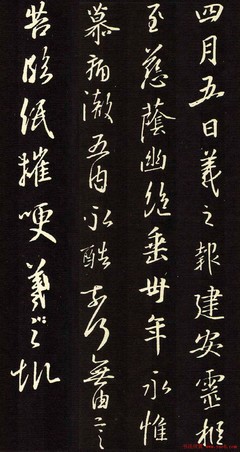 四月五日羲之報建安靈柩
至慈蔭幽絕垂卅年永惟
崩慕痛徹五內永酷奈何無由言
苦臨紙摧哽羲之